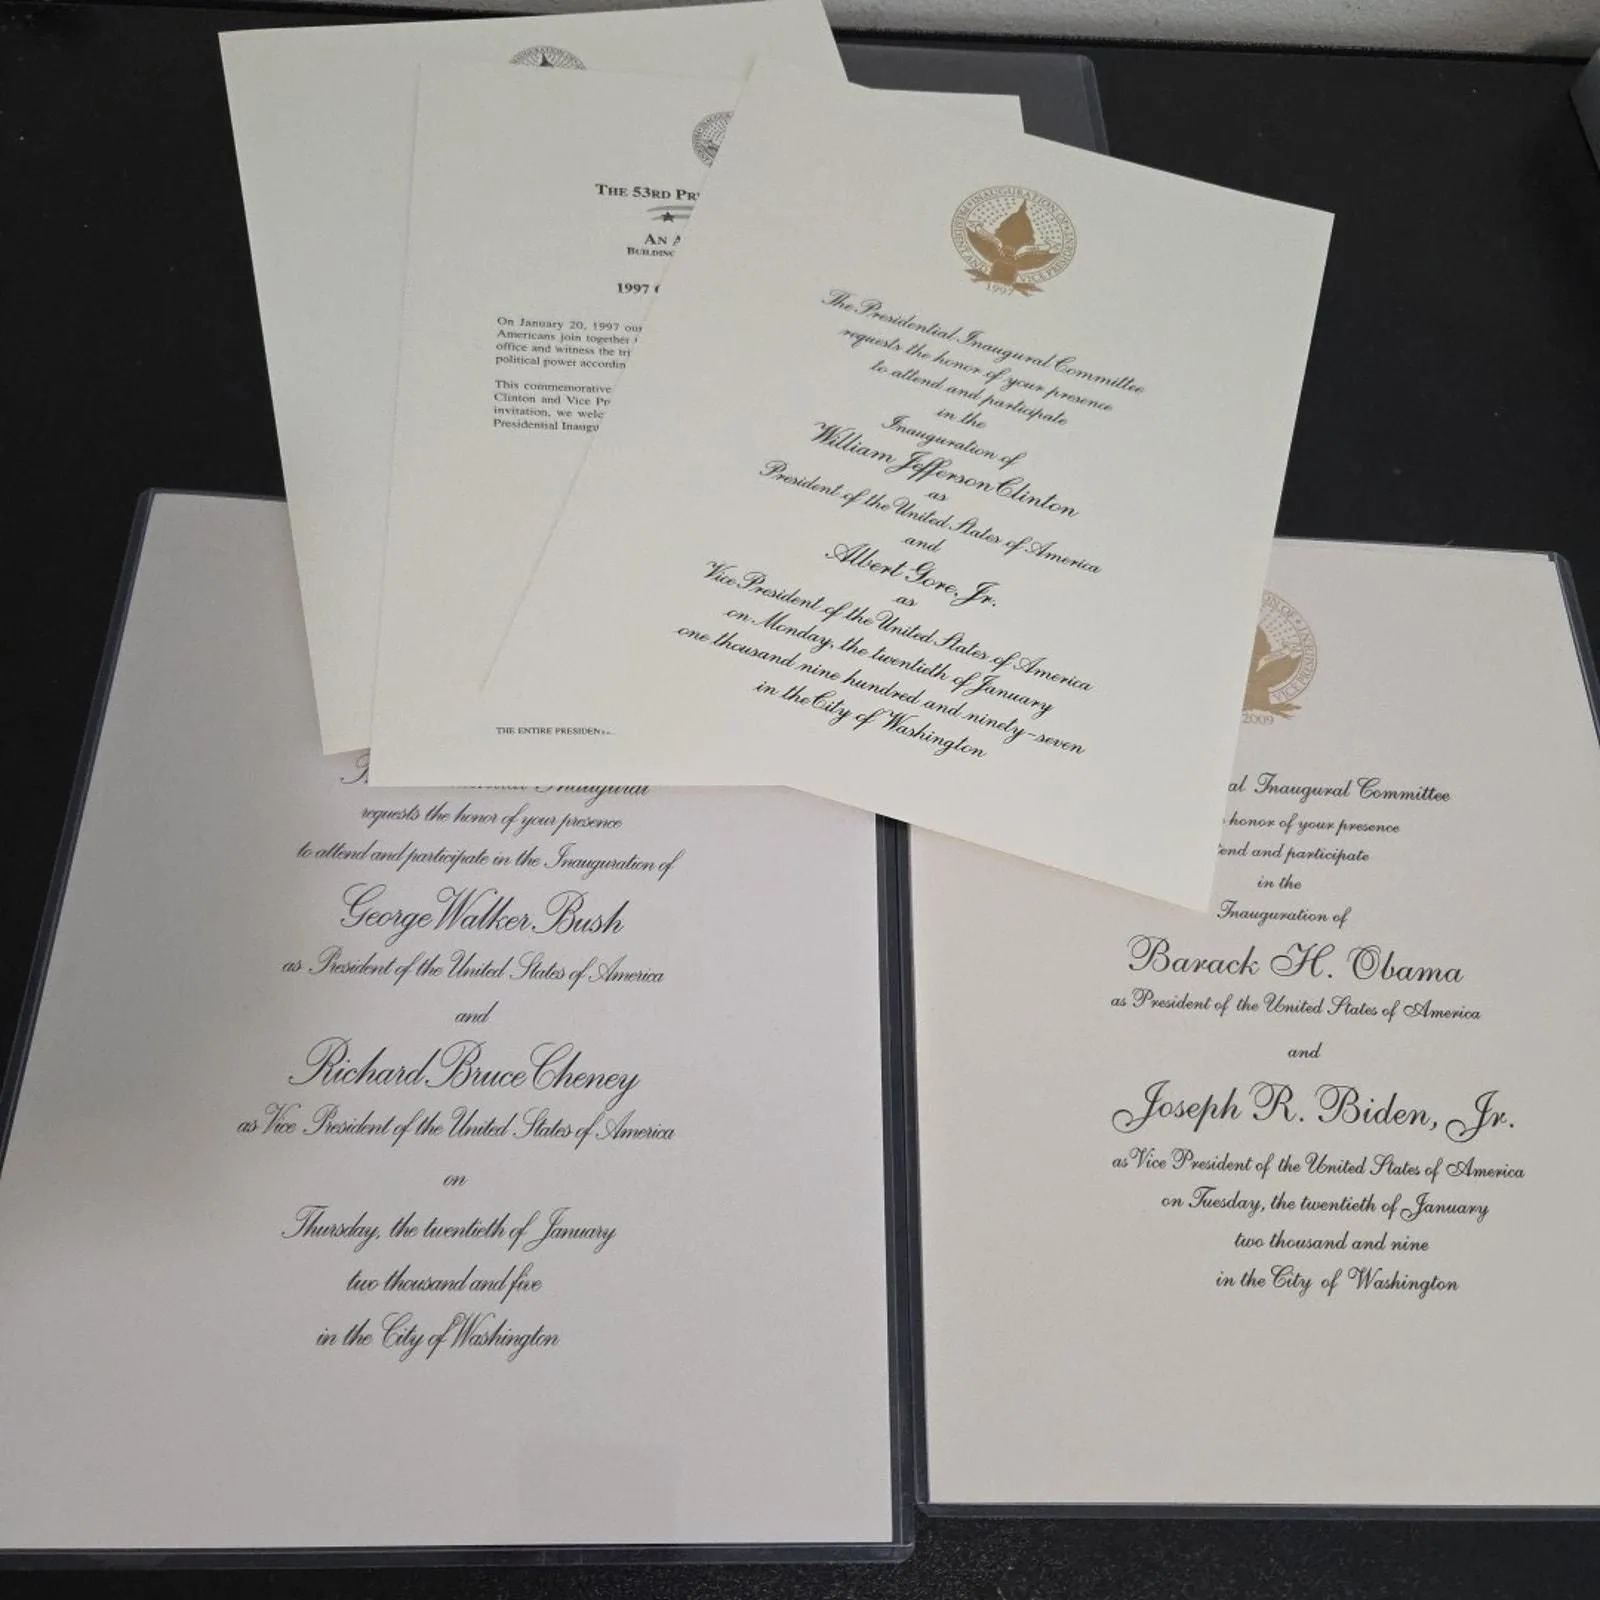 THE 53RD
AN
1997
On January 20, 1997 our
Americans join together
office and witness the
political power
This commemorative
Clinton and Vice
invitation, we
Presidential
THE ENTIRE
INAUGURATION OF
PRESIDENT AND VICE PRESIDENT
1997
The Presidential Inaugural Committee
requests the honor of your presence
to attend and participate
in the
Inauguration of
William Jefferson Clinton
as
President of the United States of America
and
Albert Gore, Jr.
as
Vice President of the United States of America
on Monday, the twentieth of January
one thousand nine hundred and ninety-seven
in the City of Washington
Inaugural
requests the honor of your presence
to attend and participate in the Inauguration of
George Walker Bush
as President of the United States of America
and
Richard Bruce Cheney
as Vice President of the United States of America
on
Thursday, the twentieth of January
two thousand and five
in the City of Washington
2009
al Inaugural Committee
honor of your presence
end and participate
in the
Inauguration of
Barack H. Obama
as President of the United States of America
and
Joseph R. Biden, Jr.
as Vice President of the United States of America
on Tuesday, the twentieth of January
two thousand and nine
in the City of Washington